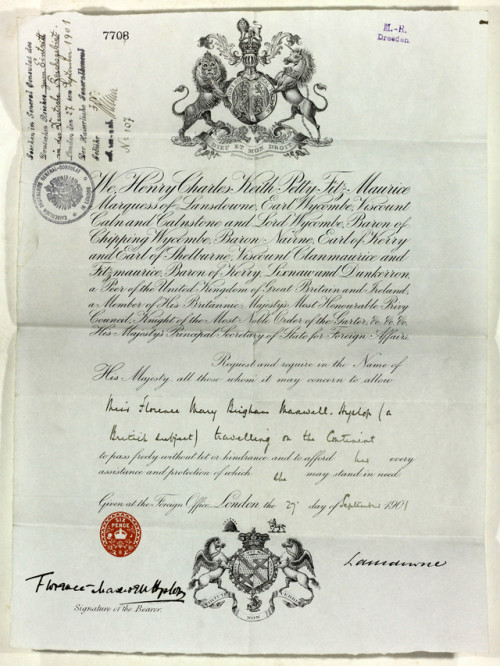 7708
M.-R.
Dresden.
Gesehen im General Consulat des
Deutschen Reichs zum Eintritt
in das Deutsche Reichsgebiet.
London den 27. ten September 1901
Der Kaiserliche Generalkonsul
Gebühr
No 107
DIEU ET MON DROIT
We, Henry Charles Keith Petty Fitz-Maurice
Marquess of Lansdowne, Earl Wycombe, Viscount
Caln and Calnstone and Lord Wycombe, Baron of
Chipping Wycombe, Baron Nairne, Earl of Kerry
and Earl of Shelburne, Viscount Clanmaurice and
Fitzmaurice, Baron of Kerry, Lixnaw and Dunkerron,
a Peer of the United Kingdom of Great Britain and Ireland,
a Member of His Britannic Majesty's Most Honourable Privy
Council, Knight of the Most Noble Order of the Garter, &c. &c. &c.
His Majesty's Principal Secretary of State for Foreign Affairs.
Request and require in the Name of
His Majesty, all those whom it may concern to allow
Miss Florence Mary Bingham Maxwell-Hyslop (a
British subject) travelling on the Continent
to pass freely without let or hindrance and to afford her every
assistance and protection of which she may stand in need.
Given at the Foreign Office, London, the 27 day of September 1901
SIX
PENCE
Lansdowne
Florence Maxwell Hyslop
Signature of the Bearer.
VIRTUTE
NON
VERBIS